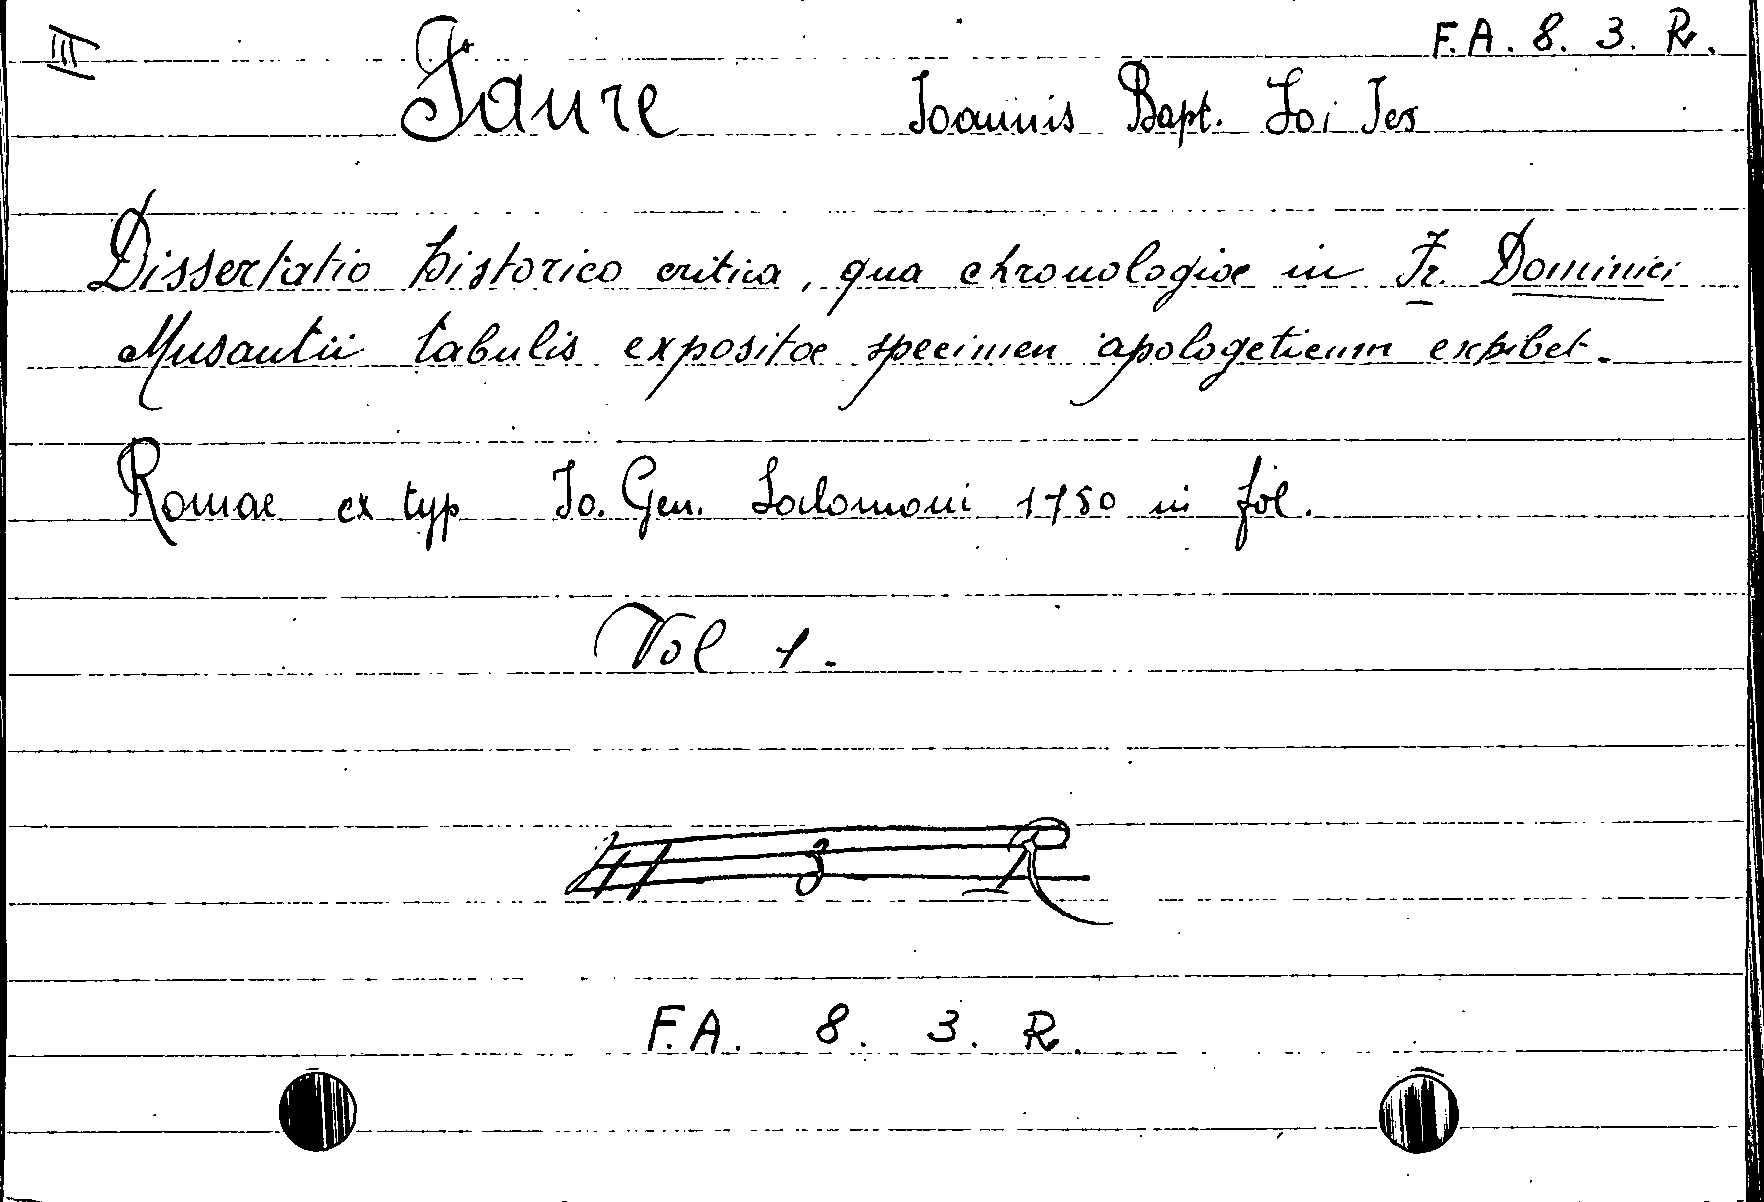 III
F.A. 8. 3. R.
Faure Ioannis Bapt. Soi Jes
Dissertatio historico critica, qua chronologiae in Fr. Dominici
Musantii tabulis expositae specimen apologeticum exhibet.
Romae ex typ Jo. Gen. Salomoni 1750 in fol.
Vol 1.
3 R
F.A. 8. 3. R.